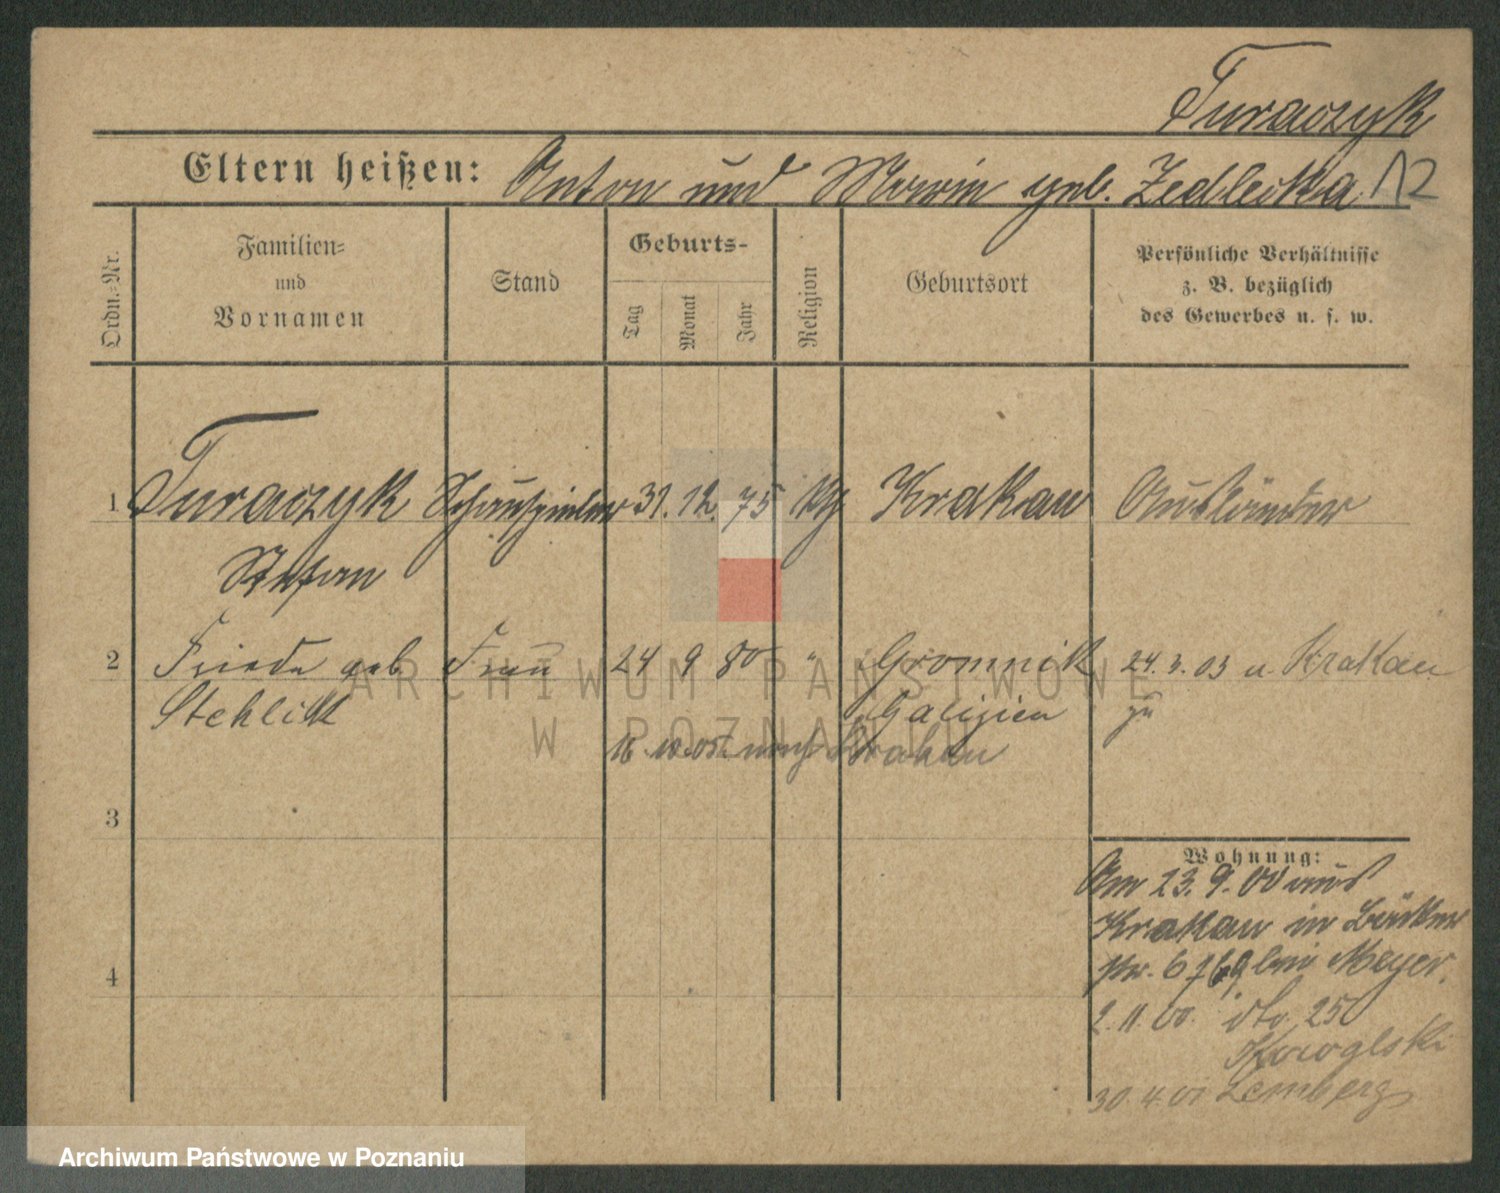 Turaczyk
Eltern heißen: Anton und Marie geb. Zedlecka 12
Ordn.-Nr.
Familien- und Vornamen
Stand
Geburts-
Tag Monat Jahr
Religion
Geburtsort
Persönliche Verhältnisse
z. B. bezüglich
des Gewerbes u. s. w.
1 Turaczyk Schauspieler 31. 12. 75 kth Krakau Ausländer
Stefan
2 Friede geb. Frau 24 9 80 " Gromnik 24.3.03 n. Krakau
Stehlik Galizien zu
nach Krakau
3
Wohnung:
Am 23. 9. 00 aus
Krakau in Bäcker
str. 6 bei Meyer.
4
2. 11. 00. dto. 25
30. 4. 01 Lemberg
ARCHIWUM PAŃSTWOWE
W POZNANIU
Archiwum Państwowe w Poznaniu